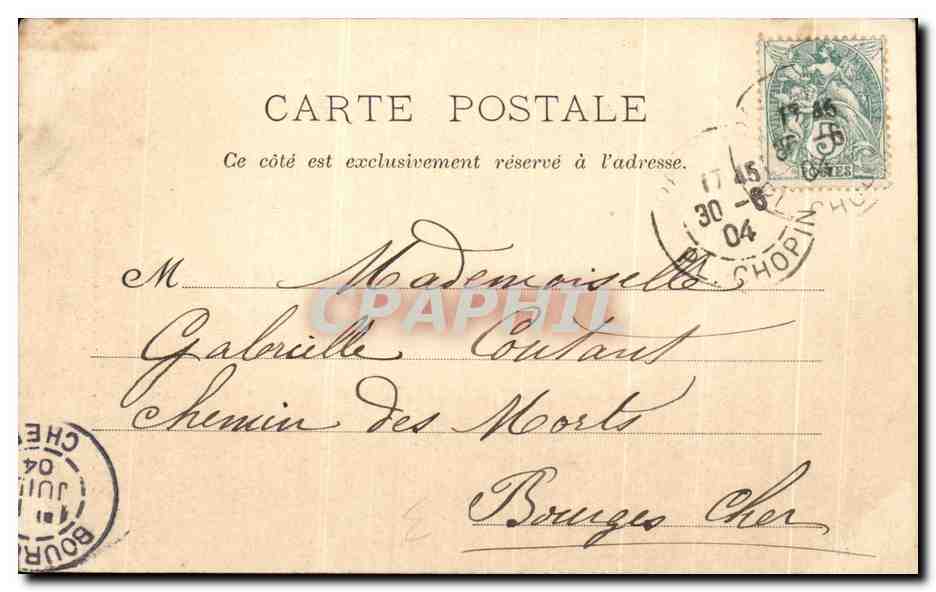 CARTE POSTALE
Ce côté est exclusivement réservé à l'adresse.
17 45
30 -6
04
PL. CHOPIN
17 45
04
5
POSTES
M Mademoiselle
Gabrielle Coutant
Chemin des Morts
Bourges Cher
CPAPHIL
CHE
04
JUIL
1
BOUR